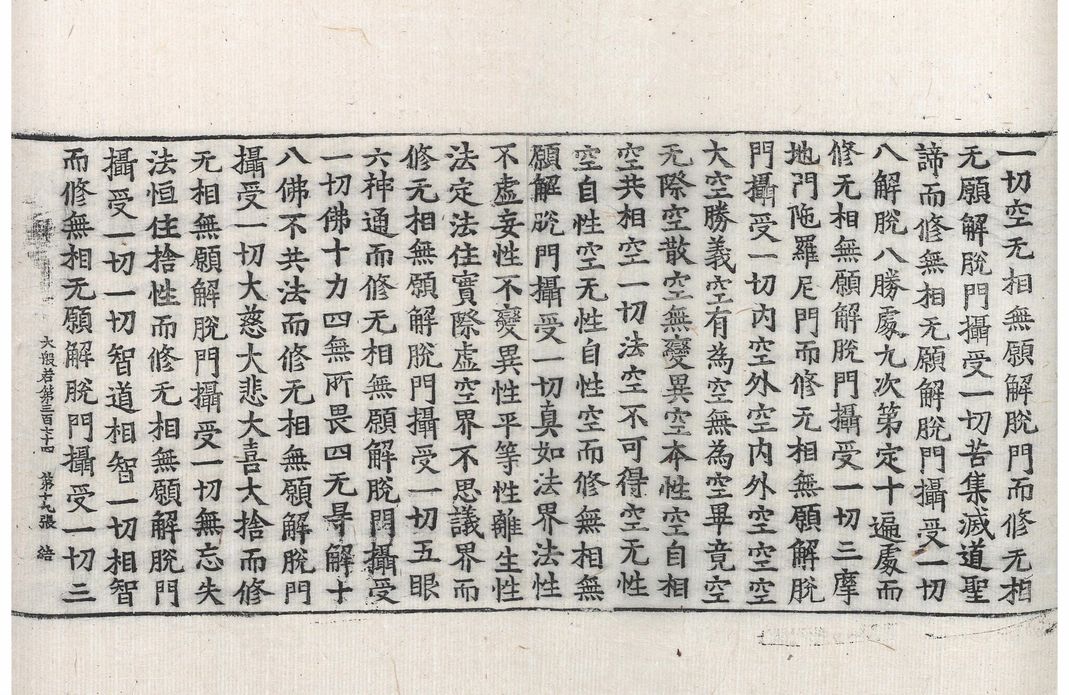 一切空无相無願解脫門而修无相
无願解脫門攝受一切苦集滅道聖
諦而修無相无願解脫門攝受一切
八解脫八勝處九次第定十遍處而
修无相無願解脫門攝受一切三摩
地門陁羅尼門而修无相無願解脫
門攝受一切內空外空內外空空空
大空勝義空有為空無為空畢竟空
无際空散空無變異空本性空自相
空共相空一切法空不可得空无性
空自性空无性自性空而修無相無
願解脫門攝受一切真如法界法性
不虛妄性不變異性平等性離生性
法定法住實際虛空界不思議界而
修无相無願解脫門攝受一切五眼
六神通而修无相無願解脫門攝受
一切佛十力四無所畏四无㝵解十
八佛不共法而修无相無願解脫門
攝受一切大慈大悲大喜大捨而修
无相無願解脫門攝受一切無忘失
法恒住捨性而修无相無願解脫門
攝受一切一切智道相智一切相智
而修無相无願解脫門攝受一切三
大般若第三百七十四 第十九張